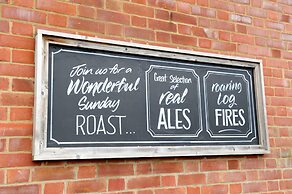 Join us for a
Wonderful
Sunday
ROAST...
Great Selection
of
real
ALES
roaring
log
FIRES